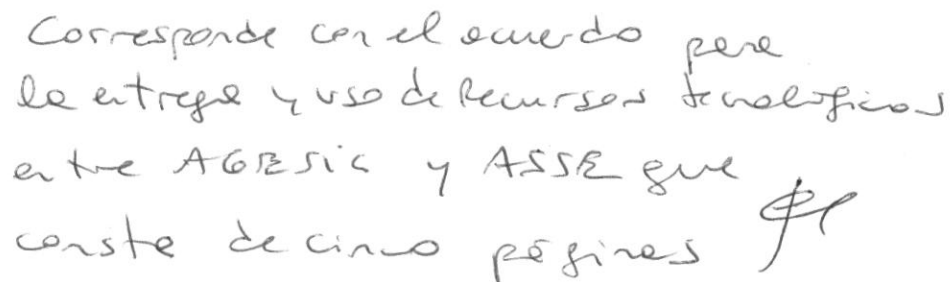 Corresponde con el acuerdo para
la entrega y uso de Recursos tecnológicos
entre AGESIC y ASSE que
consta de cinco páginas